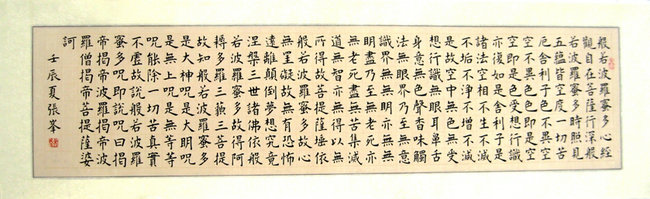 般若波羅蜜多心經
觀自在菩薩行深般
若波羅蜜多時照見
五蘊皆空度一切苦
厄舍利子色不異空
空不異色色即是空
空即是色受想行識
亦復如是舍利子是
諸法空相不生不滅
不垢不淨不增不減
是故空中無色無受
想行識無眼耳鼻舌
身意無色聲香味觸
法無眼界乃至無意
識界無無明亦無無
明盡乃至無老死亦
無老死盡無苦集滅
道無智亦無得以無
所得故菩提薩埵依
般若波羅蜜多故心
無罣礙故無有恐怖
遠離顛倒夢想究竟
涅槃三世諸佛依般
若波羅蜜多故得阿
耨多羅三藐三菩提
故知般若波羅蜜多
是大神呪是大明呪
是無上呪是無等等
呪能除一切苦真實
不虛故說般若波羅
蜜多呪即說呪曰揭
帝揭帝波羅揭帝波
羅僧揭帝菩提薩婆
訶
壬辰夏張峯